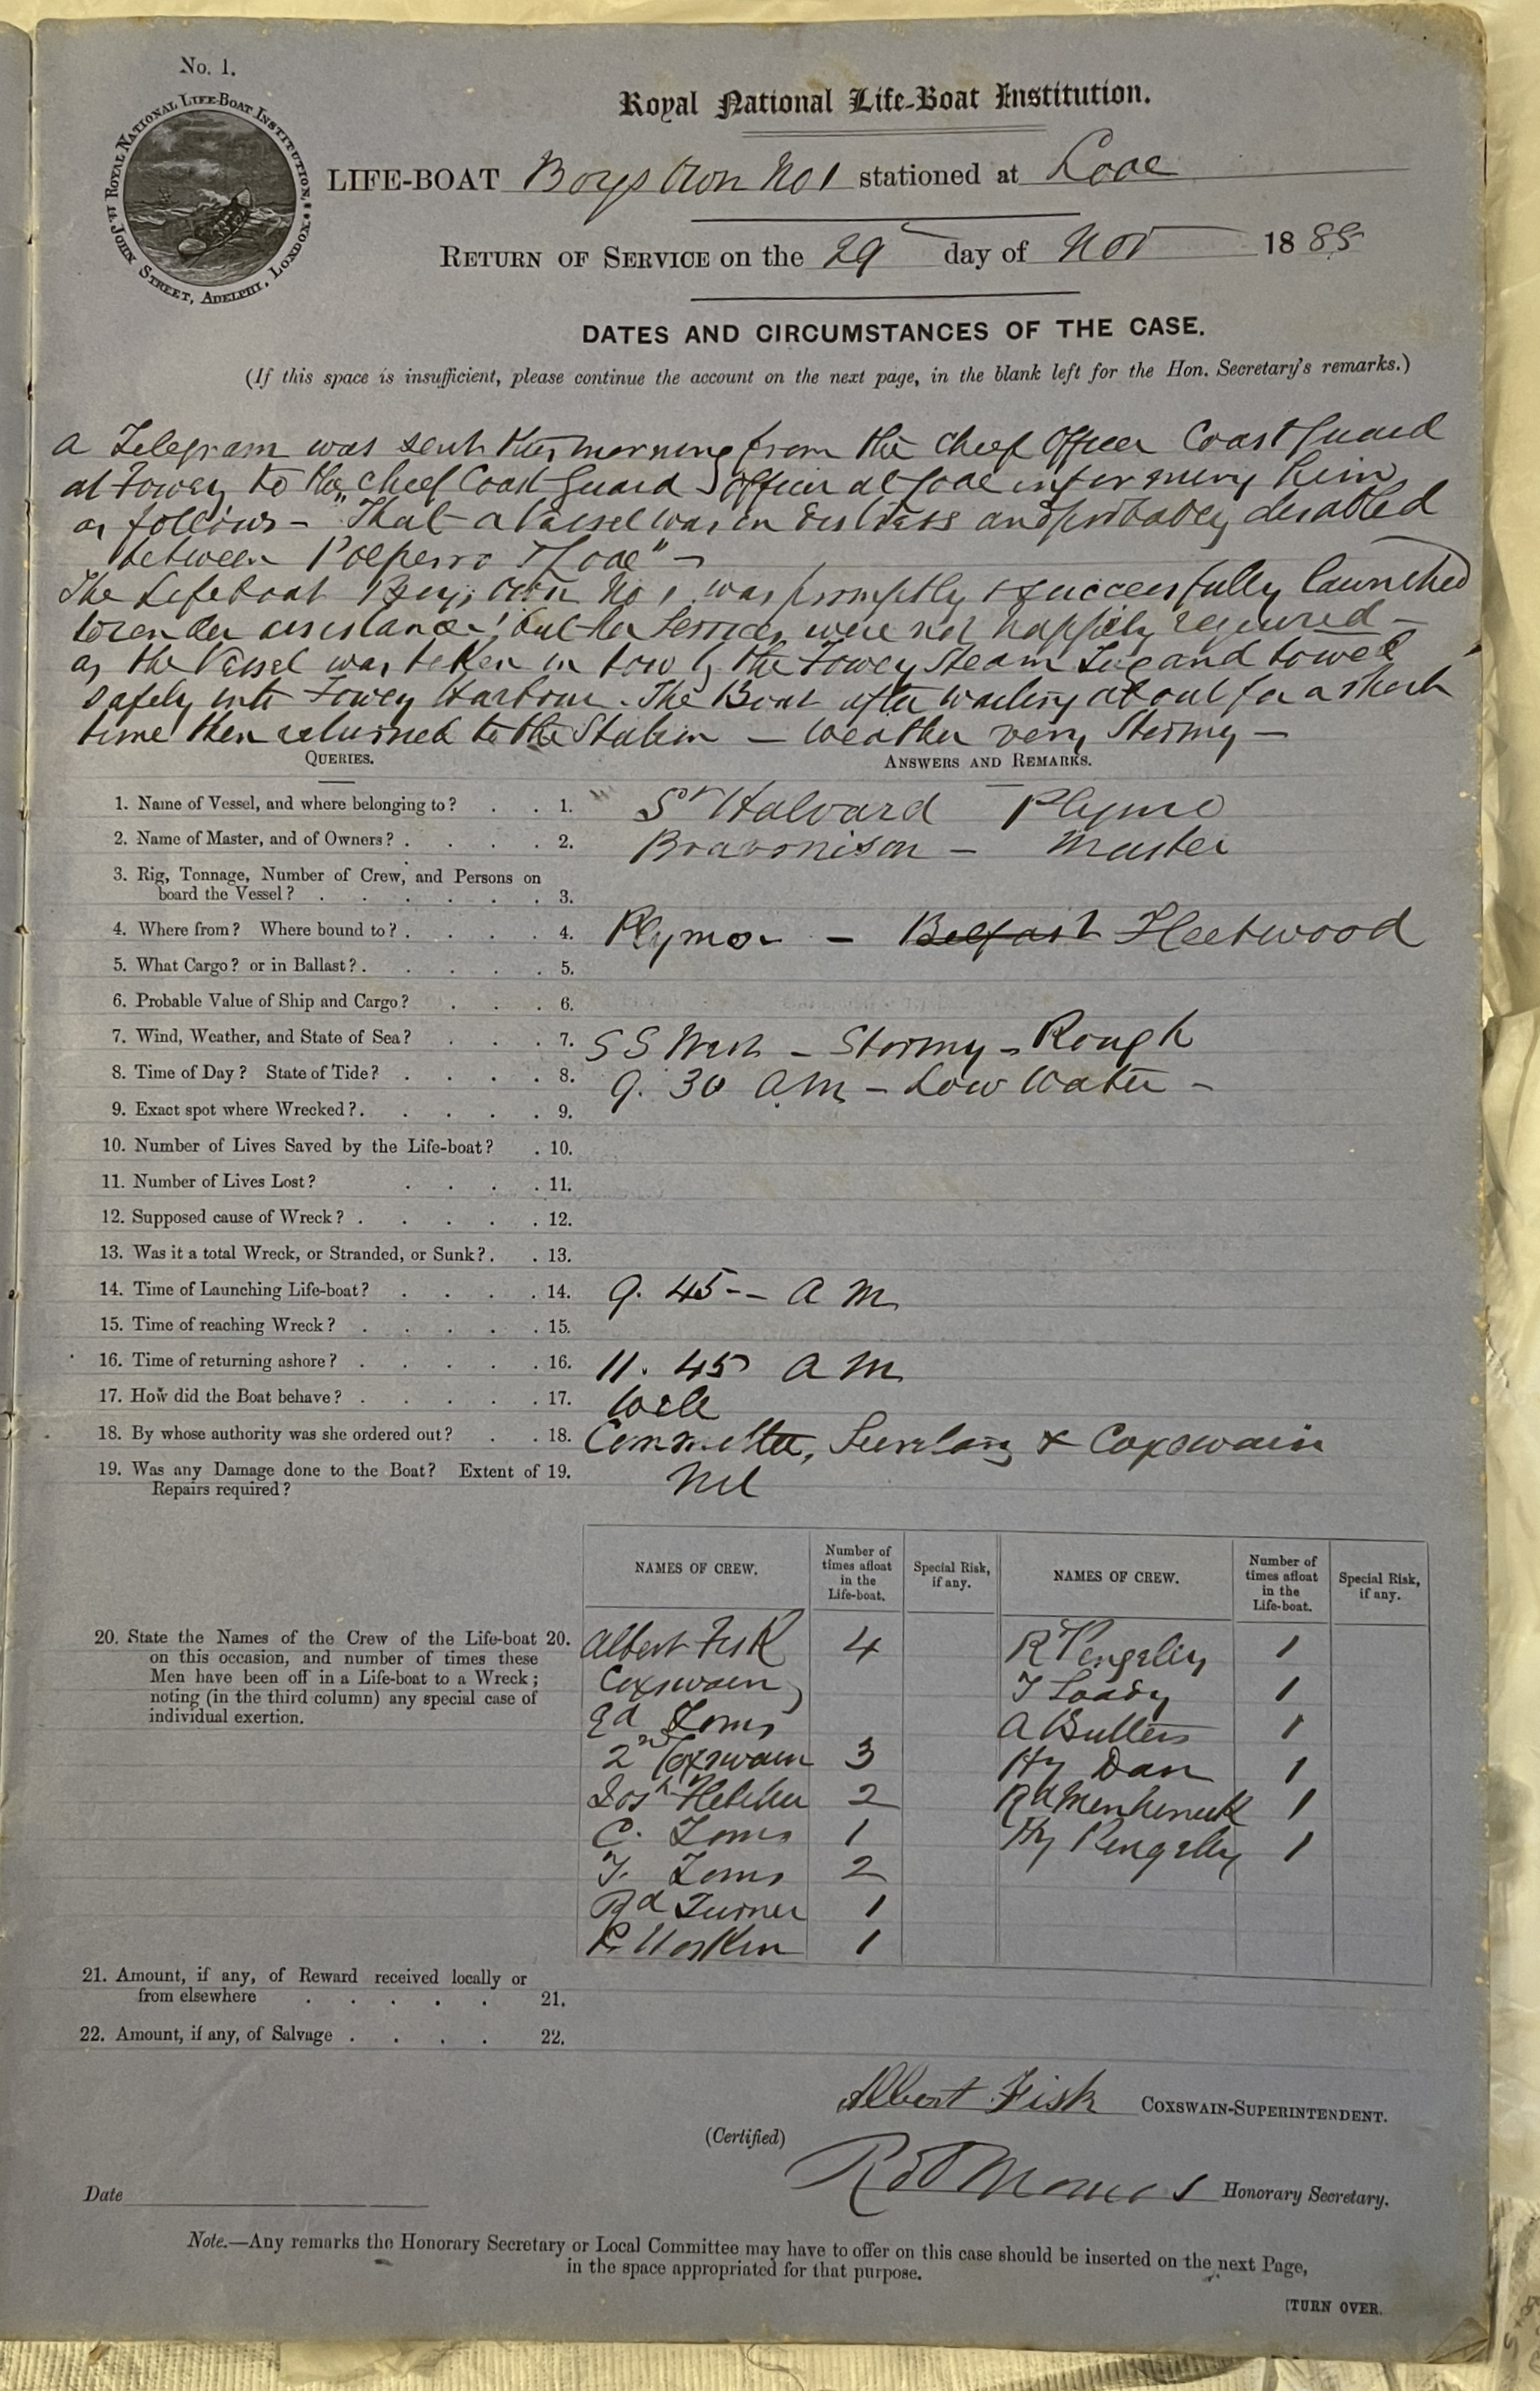 No. 1.
ROYAL NATIONAL LIFE-BOAT INSTITUTION.
14 JOHN STREET, ADELPHI, LONDON.
Royal National Life-Boat Institution.
LIFE-BOAT Boys Own No 1 stationed at Looe
RETURN OF SERVICE on the 29 day of Nov 1885
DATES AND CIRCUMSTANCES OF THE CASE.
(If this space is insufficient, please continue the account on the next page, in the blank left for the Hon. Secretary's remarks.)
a Telegram was sent this morning from the Chief Officer Coast Guard
at Fowey to the Chief Coast Guard Officer at Looe informing him
as follows – "That a Vessel was in distress and probably disabled
between Polperro & Looe" –
The Lifeboat Boys Own No 1 was promptly & successfully launched
to render assistance, but her Services were not happily required –
as the Vessel was taken in tow by the Fowey Steam Tug and towed
safely into Fowey Harbour. The Boat after waiting about for a short
time then returned to the Station – Weather very Stormy –
QUERIES.
ANSWERS AND REMARKS.
1. Name of Vessel, and where belonging to? . . 1. St Halvard
2. Name of Master, and of Owners? . . . . 2. – Master
3. Rig, Tonnage, Number of Crew, and Persons on
board the Vessel? . . . . . . 3.
4. Where from? Where bound to? . . . . 4. – Belfast Fleetwood
5. What Cargo? or in Ballast? . . . . . 5.
6. Probable Value of Ship and Cargo? . . . 6.
7. Wind, Weather, and State of Sea? . . . 7. S S West – Stormy – Rough
8. Time of Day? State of Tide? . . . . 8. 9. 30 a.m – Low Water –
9. Exact spot where Wrecked? . . . . . 9.
10. Number of Lives Saved by the Life-boat? . 10.
11. Number of Lives Lost? . . . . 11.
12. Supposed cause of Wreck? . . . . . 12.
13. Was it a total Wreck, or Stranded, or Sunk? . . 13.
14. Time of Launching Life-boat? . . . . 14. 9. 45 -- a m
15. Time of reaching Wreck? . . . . . 15.
16. Time of returning ashore? . . . . . 16. 11. 45 a m
17. How did the Boat behave? . . . . . 17. Well
18. By whose authority was she ordered out? . . 18. Committee, Secretary & Coxswain
19. Was any Damage done to the Boat? Extent of 19. Nil
Repairs required?
NAMES OF CREW. Number of times afloat in the Life-boat. Special Risk, if any. NAMES OF CREW. Number of times afloat in the Life-boat. Special Risk, if any.
20. State the Names of the Crew of the Life-boat 20.
on this occasion, and number of times these
Men have been off in a Life-boat to a Wreck;
noting (in the third column) any special case of
individual exertion.
Albert Fisk 4
Coxswain
Ed Toms
2nd Coxswain 3
Josh Fletcher 2
C. Toms 1
T. Toms 2
Rd Turner 1
Hoskin 1
R Pengelly 1
T Loady 1
A Butters 1
Hy Dan 1
Rd Menheneick 1
Hy Pengelly 1
21. Amount, if any, of Reward received locally or
from elsewhere . . . . . 21.
22. Amount, if any, of Salvage . . . . 22.
Albert Fisk COXSWAIN-SUPERINTENDENT.
(Certified)
Honorary Secretary.
Date
Note.—Any remarks the Honorary Secretary or Local Committee may have to offer on this case should be inserted on the next Page,
in the space appropriated for that purpose.
[TURN OVER.